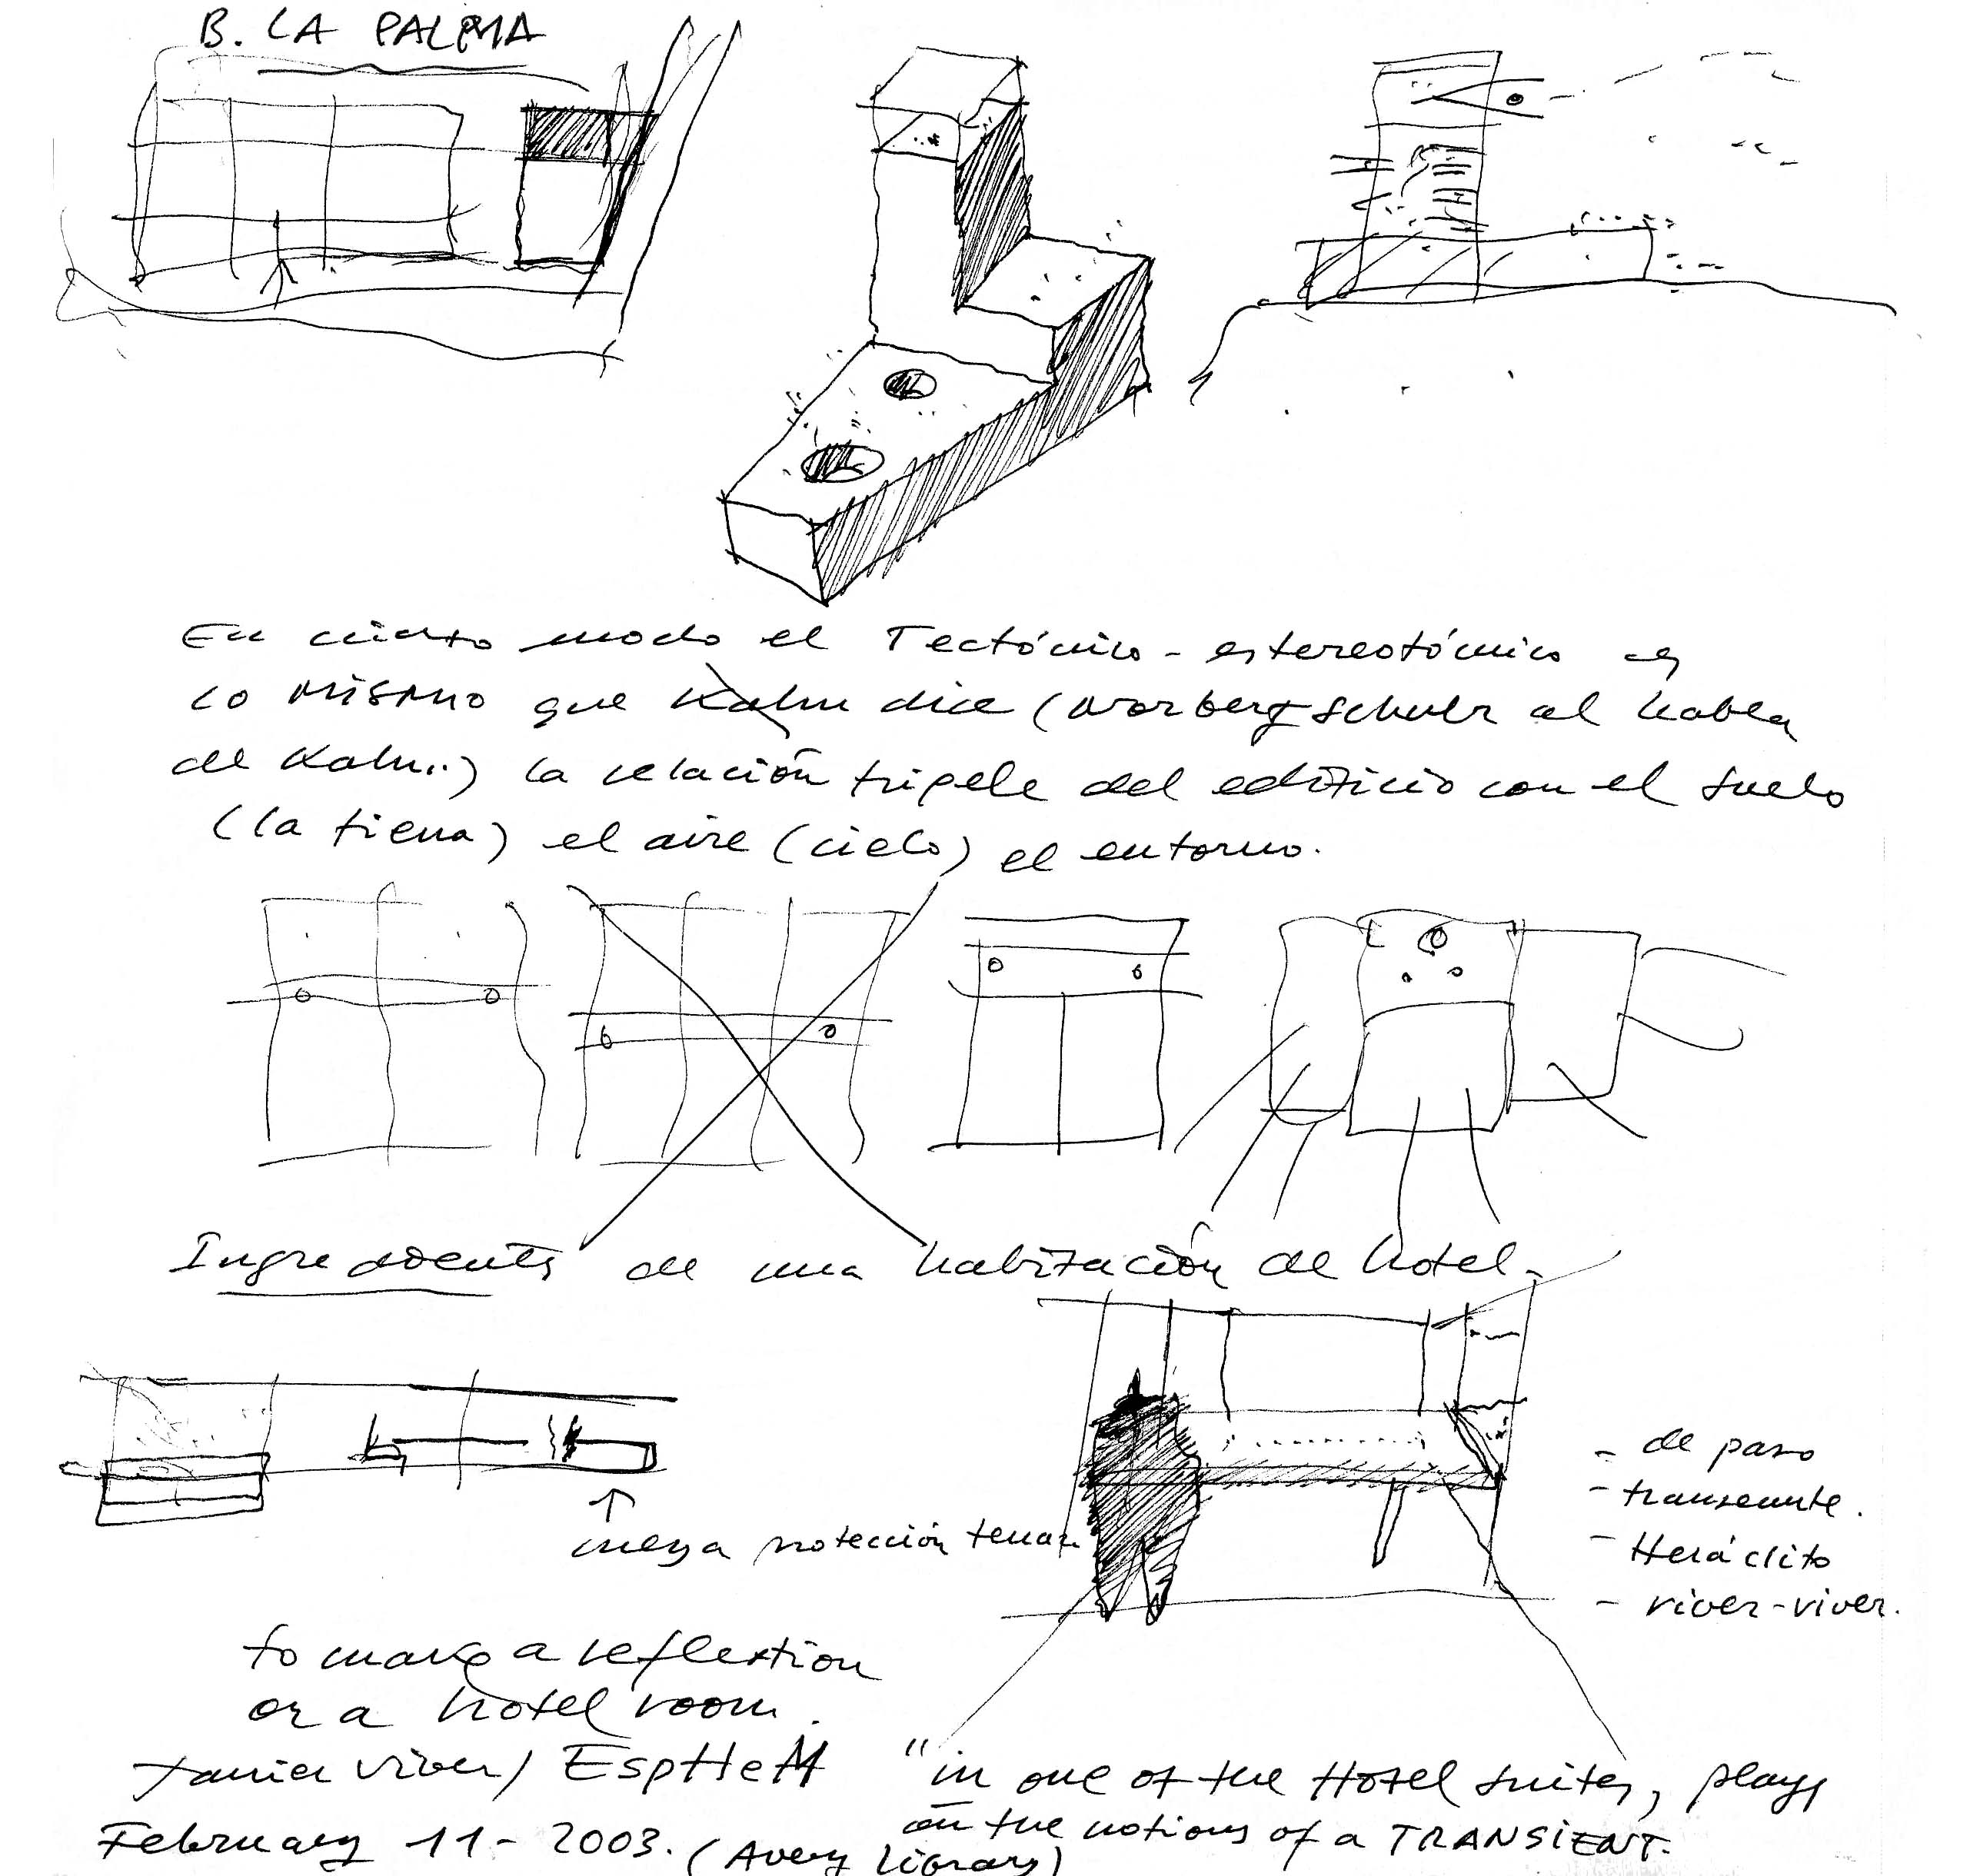 B. LA PALMA
En cierto modo el Tectónico-estereotómico es
lo MISMO que Kahn dice (Norberg Schulz al habla
de Kahn..) la relación triple del edificio con el suelo
(la tierra) el aire (cielo) el entorno.
Ingredients de una habitación de hotel-
- de paso
- transeunte.
- Heráclito
- river-viver.
mesa protección
to make a reflection
on a hotel room.
Xavier Viver / EspHeM
February 11-2003. (Avery Library)
"in one of the Hotel suites, plays
on the notions of a TRANSiENT.